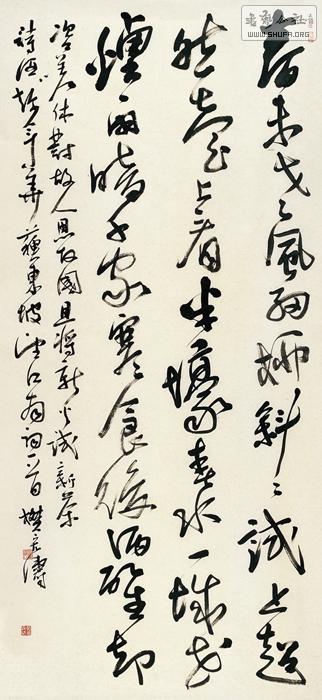 春未老風細柳斜〻試上超
然臺上看半壕春水一城花
煙雨暗千家寒食後酒醒却
咨嗟休對故人思故國且將新火試新茶
詩酒趁年華 蘇東坡望江南詞一首
WWW.SHUFA.ORG